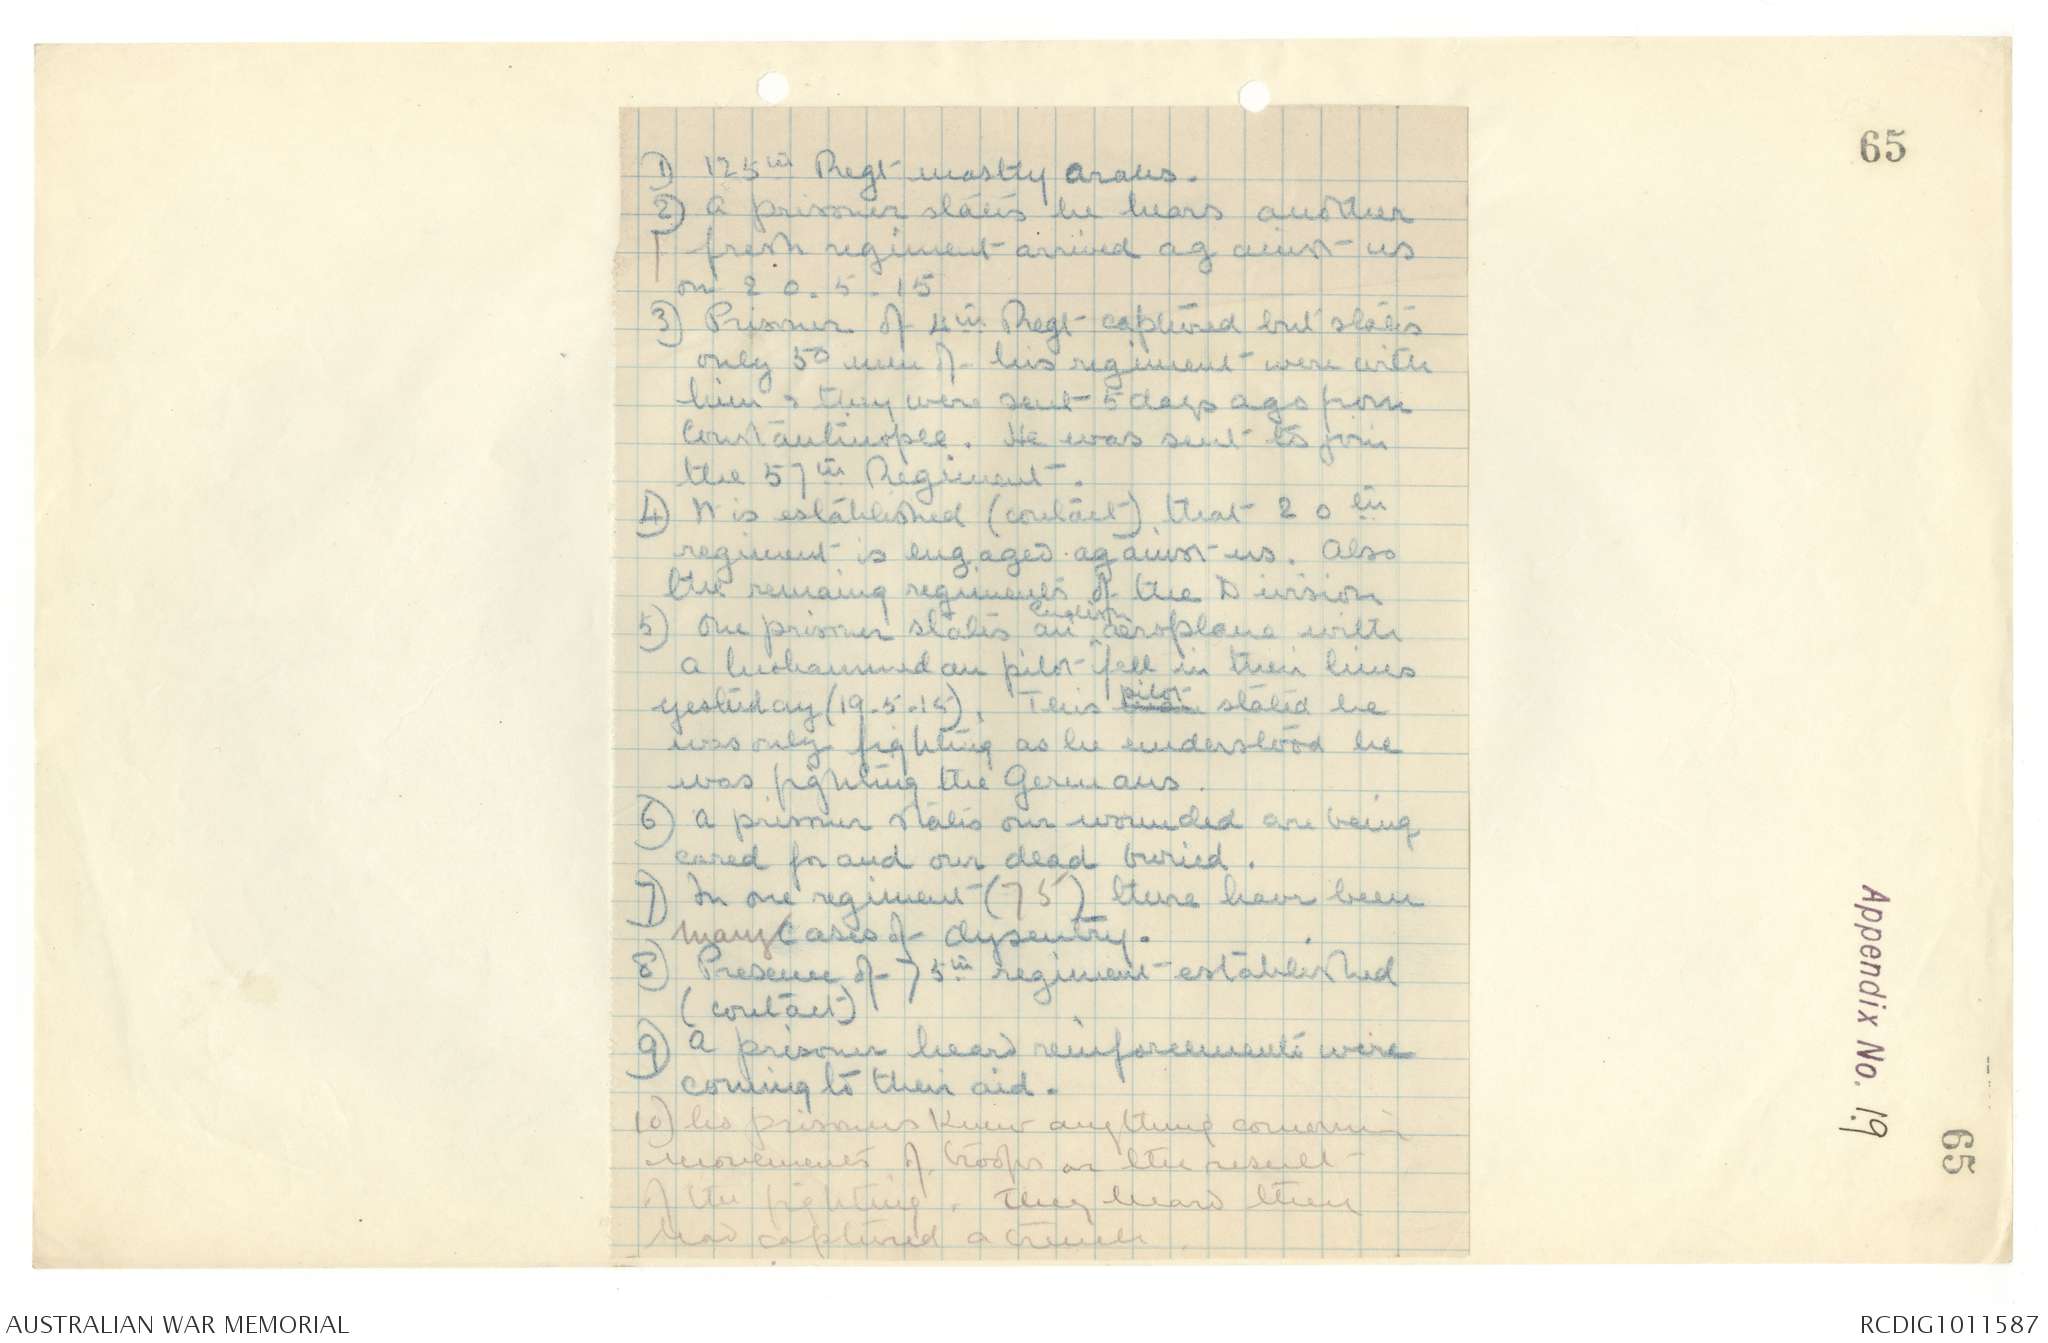 65
1) 125th Regt mostly arabs.
2) A prisoner states he hears another
fresh regiment arrived against us
on 20.5.15
3) Prisoner of 4th Regt captured but states
only 50 men of his regiment were with
him & they were sent 5 days ago from
Constantinople. He was sent to join
the 57th Regiment.
4) It is established (contact) that 20th
regiment is engaged against us. Also
the remaing regiments of the Division
5) One prisoner states an aeroplane with
a Mohammedan pilot fell in their lines
yesterday (19.5.15). This pilot stated he
was only fighting as he understood he
was fighting the Germans.
6) A prisoner states our wounded are being
cared for and our dead buried.
7) In one regiment (75) there have been
many cases of dysentry.
8) Presence of 75th regiment established
(contact)
9) A prisoner heard reinforcements were
coming to their aid.
10) No prisoners knew anything concerning
movements of troops or the result
of the fighting. They heard they
had captured a trench.
Appendix No. 19
65
AUSTRALIAN WAR MEMORIAL
RCDIG1011587